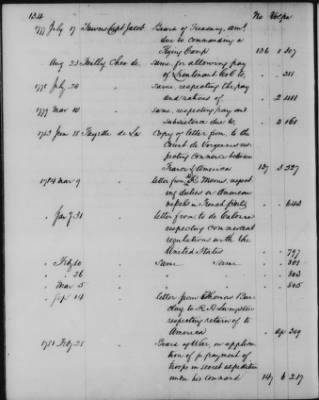 134 No Vol pa
1777 July 17 Furvers Capt Jacob Board of Treasury, amt
due to commanding a
Flying Camp 136 1 307
Aug 23 same, for allowing pay
of Lieutenant Col to, 311
1778 July 24 same, respecting the pay
and rations of
1779 Mar 10 same, respecting pay and
subsistence due to, 2 161
1783 Jan 18 Fayette de La Copy of letter from, to the
Count de Vergennes res
pecting commerce between
France & America 137 327
1784 Mar 9 letter from R. Morris, respect
ing duties on American
vessels in French ports 643
Jan 31 letter from to de Calonne
respecting Commercial
regulations with the
United States 797
" Feby 10 " Same Same 801
" 26 " " " 803
" Mar 5 " " " 805
" Sep 14 letter from Thomas Bar
clay to R. R. Livingston
respecting return of to
America 309
1781 Feby 28 " Board of War, on applica
tion of for payment of
troops in secret expedition
under his command 147 6 217